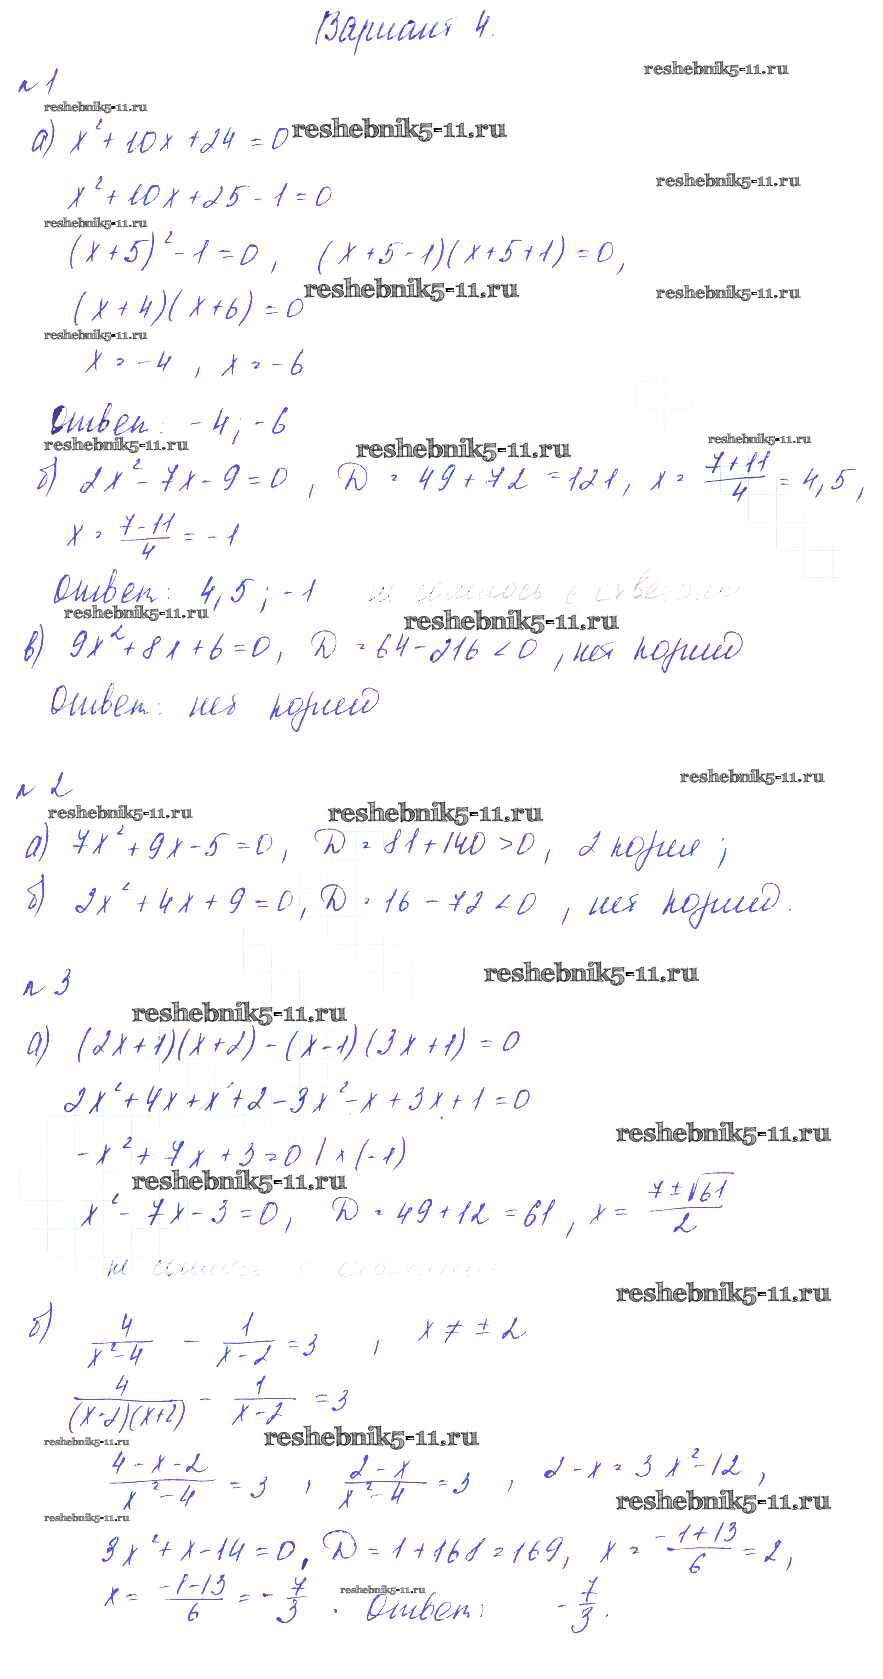 Вариант 4.
reshebnik5-11.ru
№1
reshebnik5-11.ru
а) x²+10x+24=0 reshebnik5-11.ru
x²+10x+25-1=0 reshebnik5-11.ru
reshebnik5-11.ru
(x+5)²-1=0, (x+5-1)(x+5+1)=0,
reshebnik5-11.ru reshebnik5-11.ru
(x+4)(x+6)=0
reshebnik5-11.ru
x=-4, x=-6
Ответ: -4; -6
reshebnik5-11.ru reshebnik5-11.ru reshebnik5-11.ru
б) 2x²-7x-9=0, D=49+72=121, x=(7+11)/4=4,5,
x=(7-11)/4=-1
Ответ: 4,5; -1
reshebnik5-11.ru reshebnik5-11.ru
в) 9x²+8x+6=0, D=64-216<0, нет корней
Ответ: нет корней
№2 reshebnik5-11.ru
reshebnik5-11.ru reshebnik5-11.ru
а) 7x²+9x-5=0, D=81+140>0, 2 корня;
б) 2x²+4x+9=0, D=16-72<0, нет корней.
№3 reshebnik5-11.ru
reshebnik5-11.ru
а) (2x+1)(x+2)-(x-1)(3x+1)=0
2x²+4x+x+2-3x²-x+3x+1=0
reshebnik5-11.ru
-x²+7x+3=0 |×(-1)
reshebnik5-11.ru
x²-7x-3=0, D=49+12=61, x=(7±√61)/2
reshebnik5-11.ru
б) 4/(x²-4) - 1/(x-2)=3, x≠±2
4/((x-2)(x+2)) - 1/(x-2)=3
reshebnik5-11.ru reshebnik5-11.ru
(4-x-2)/(x²-4)=3, (2-x)/(x²-4)=3, 2-x=3x²-12,
reshebnik5-11.ru reshebnik5-11.ru
3x²+x-14=0, D=1+168=169, x=(-1+13)/6=2,
x=(-1-13)/6=-7/3. reshebnik5-11.ru Ответ: -7/3.